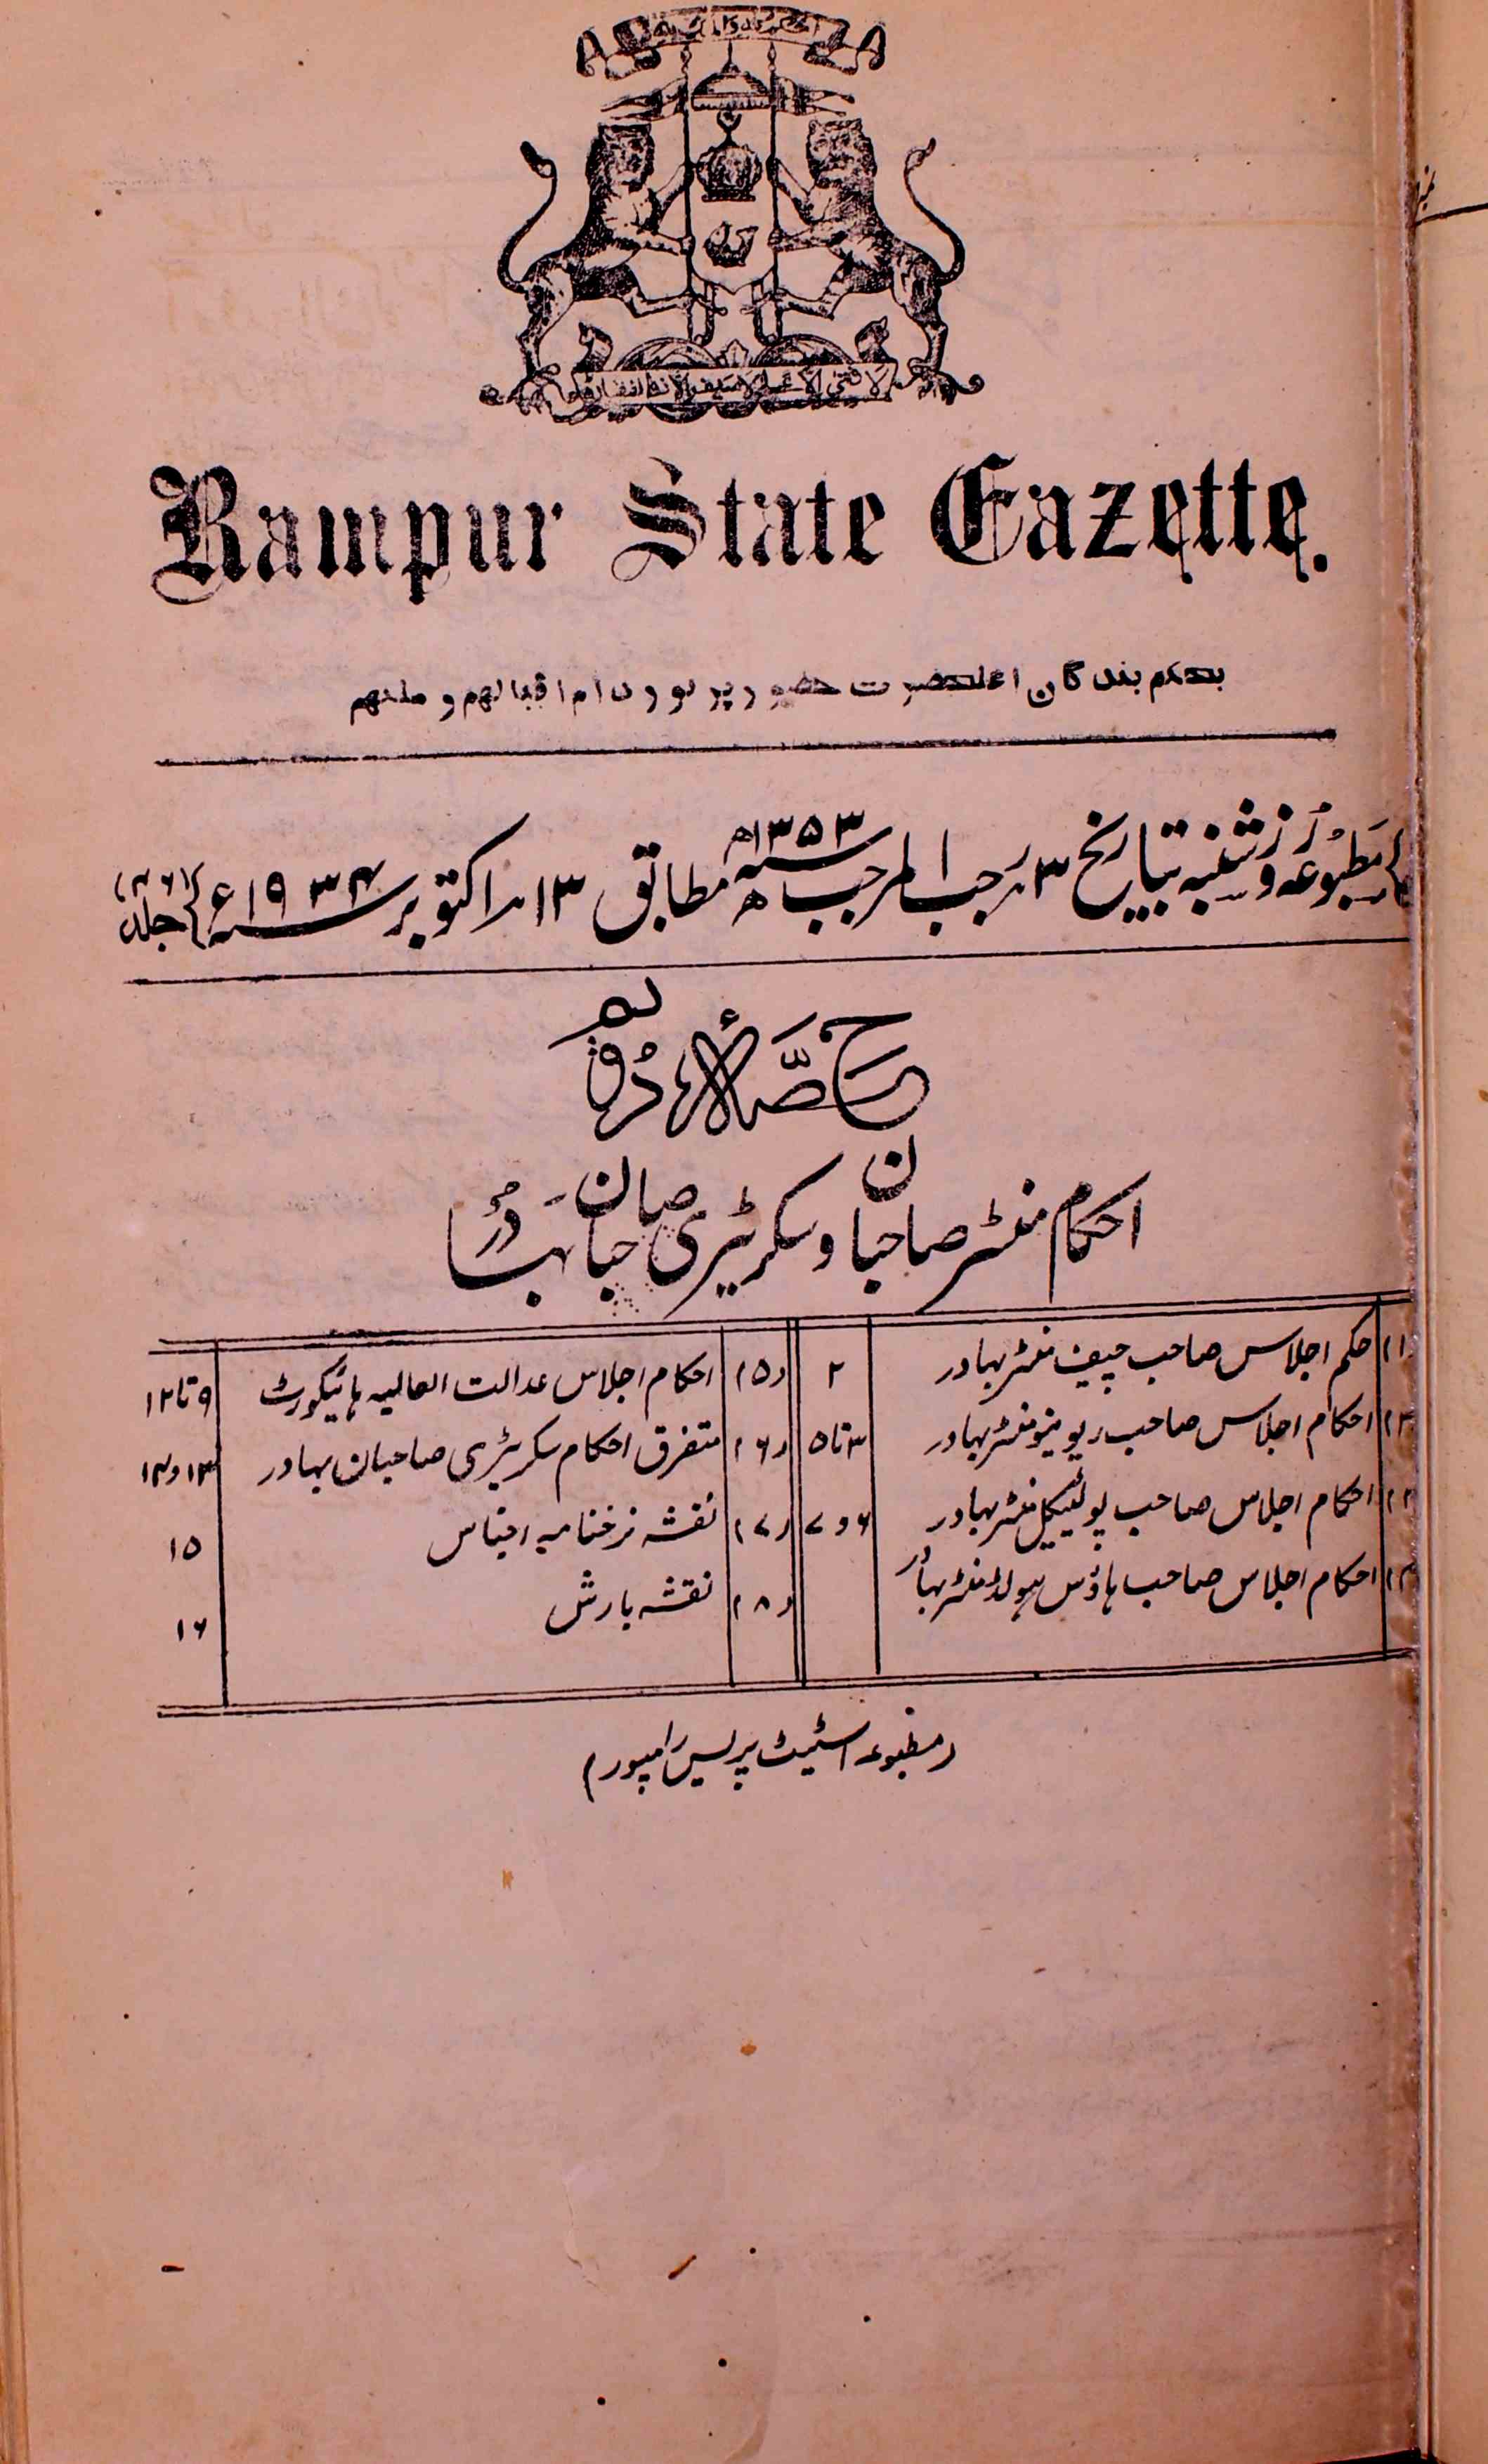 لا فتیٰ الا علی لا سیف الا ذوالفقار
Rampur State Gazette.
بحکم بندگان اعلیحضرت حضور پرنور دام اقبالهم و ملکهم
مطبوعہ روز شنبہ بتاریخ ۳ رجب المرجب سنہ ۱۳۵۳ھ مطابق ۱۳ اکتوبر سنہ ۱۹۳۴ء جلد (۴۶)
حصّہ دوم
احکام منسٹر صاحبان و سکریٹری صاحبان بہادر
(۱) حکم اجلاس صاحب چیف منسٹر بہادر ۲
(۲) احکام اجلاس صاحب ریونیو منسٹر بہادر ۳ تا ۵
(۳) احکام اجلاس صاحب پولیٹیکل منسٹر بہادر ۶ و ۷
(۴) احکام اجلاس صاحب ہاؤس ہولڈ منسٹر بہادر
(۵) احکام اجلاس عدالت العالیہ ہائیکورٹ ۹ تا ۱۲
(۶) متفرق احکام سکریٹری صاحبان بہادر ۱۳ و ۱۴
(۷) نقشہ نرخنامہ اجناس ۱۵
(۸) نقشہ بارش ۱۶
(مطبوعہ اسٹیٹ پریس رامپور)